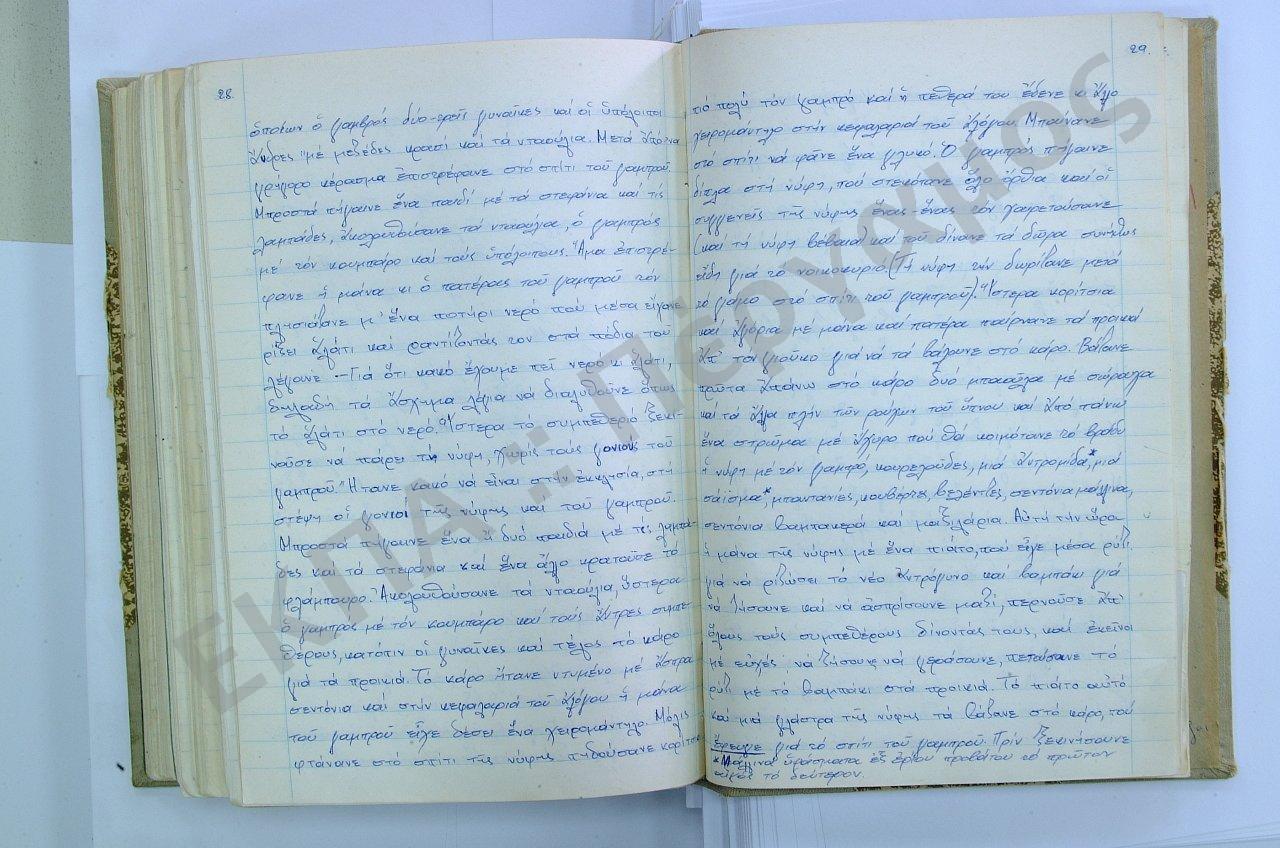 28.
ὁποίων ὁ γαμβρός δύο-τρεῖς γυναῖκες καί οἱ ὑπόλοιποι
ἄνδρες "μέ μεζέδες κρασί καί τά νταούλια. Μετά ἀπό ἕνα
γρήγορο κέρασμα ἐπιστρέφανε στό σπίτι τοῦ γαμπροῦ.
Μπροστά πήγαινε ἕνα παιδί μέ τά στεφάνια καί τίς
λαμπάδες, ἀκολουθούσανε τά νταούλια, ὁ γαμπρός
μέ τόν κουμπάρο καί τούς ὑπόλοιπους. Ἅμα ἐπιστρέ-
φανε ἡ μάνα κι ὁ πατέρας τοῦ γαμπροῦ τόν
πλησιάζανε μ' ἕνα ποτήρι νερό πού μέσα εἴχανε
ρίξει ἁλάτι καί ραντίζοντάς τον στά πόδια τοῦ
λέγανε -Γιά ὅτι κακό ἔχουμε πεῖ νερό κι ἁλάτι,
δηλαδή τά ἄσχημα λόγια νά διαλυθοῦνε ὅπως
τό ἁλάτι στό νερό. Ὕστερα τό συμπεθεριό ξεκι-
νοῦσε νά πάρει τή νύφη, χωρίς τούς γονιούς τοῦ
γαμπροῦ. Ἤτανε κακό νά εἶναι στήν ἐκκλησία, στή
στέψη οἱ γονιοί τῆς νύφης καί τοῦ γαμπροῦ.
Μπροστά πήγαινε ἕνα ἤ δυό παιδιά μέ τίς λαμπά-
δες καί τά στεφάνια καί ἕνα ἄλλο κρατοῦσε τό
φλάμπουρο. Ἀκολουθούσανε τά νταούλια, ὕστερα
ὁ γαμπρός μέ τόν κουμπάρο καί τούς ἄντρες συμπε-
θέρους, κατόπιν οἱ γυναῖκες καί τέλος τό κάρο
γιά τά προικιά. Τό κάρο ἤτανε ντυμένο μέ ἄσπρα
σεντόνια καί στήν κεφαλαριά τοῦ ἀλόγου ἡ μάνα
τοῦ γαμπροῦ εἶχε δέσει ἕνα χειρομάντηλο. Μόλις
φτάνανε στό σπίτι τῆς νύφης πηδούσανε
29.
πιό πολύ τόν γαμπρό καί ἡ πεθερά του ἔδενε κι ἄλλο
χειρομάντηλο στήν κεφαλαριά τοῦ ἀλόγου. Μπαίνανε
στό σπίτι νά φᾶνε ἕνα γλυκό. Ὁ γαμπρός πήγαινε
δίπλα στή νύφη, πού στεκότανε ὅλο ὄρθια καί οἱ
συγγενεῖς τῆς νύφης ἕνας-ἕνας τόν χαιρετούσανε
(καί τή νύφη βέβαια) καί τοῦ δίνανε τά δῶρα συνήθως
εἴδη γιά τό νοικοκυριό. (Τή νύφη τήν δωρίζανε μετά
τό γάμο στό σπίτι τοῦ γαμπροῦ). Ὕστερα κορίτσια
καί ἀγόρια μέ μάνα καί πατέρα παίρνανε τά προικιά
ἀπ' τόν γιοῦκο γιά νά τά βάλουνε στό κάρο. Βάζανε
πρῶτα ἀπάνω στό κάρο δυό μπαοῦλα μέ σώρουχα
καί τά ἄλλα πλήν τῶν ρούχων τοῦ ὕπνου καί ἀπό πάνω
ἕνα στρῶμα μέ ἄχυρο πού θά κοιμότανε τό βράδυ
ἡ νύφη μέ τόν γαμπρό, κουρελοῦδες, μιά ἀντρομίδα*, μιά
σάϊσμα*, μπαντανίες, κουβέρτες, βελέντζες, σεντόνια μάλλινα,
σεντόνια βαμπακερά καί μαξιλάρια. Αὐτή τήν ὥρα
ἡ μάνα τῆς νύφης μέ ἕνα πιάτο, πού εἶχε μέσα ρύζι
γιά νά ριζώσει τό νέο ἀντρόγυνο καί βαμπάκι γιά
νά ζήσουνε καί νά ἀσπρίσουνε μαζί, περνοῦσε ἀπ'
ὅλους τούς συμπεθέρους δίνοντάς τους, καί ἐκεῖνοι
μέ εὐχές νά ζήσουνε νά γεράσουνε, πετούσανε τό
ρύζι μέ τό βαμπάκι στά προικιά. Τό πιάτο αὐτό
καί μιά γλάστρα τῆς νύφης τά βάζανε στό κάρο, πού
ἔφευγε γιά τό σπίτι τοῦ γαμπροῦ. Πρίν ξεκινήσουνε
* Μάλλινα ὑφάσματα ἐξ ἐρίου προβάτου τό πρῶτον
τό δεύτερον.
ΕΚΠΑ :: Πέργαμος